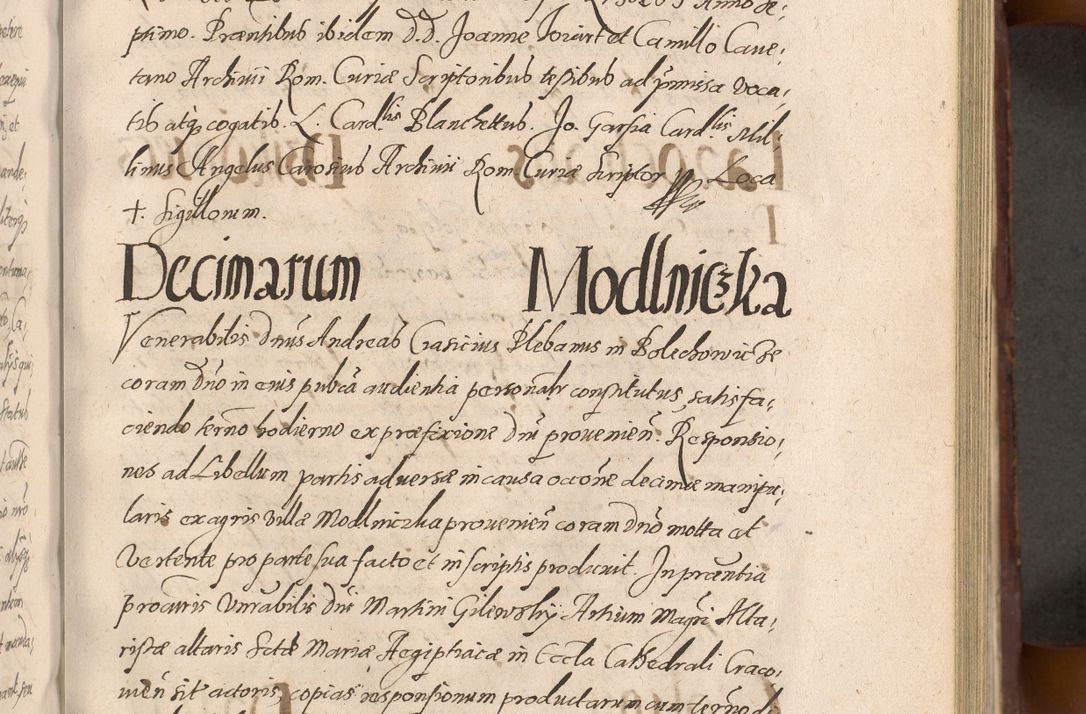 ptimo. Præntibus ibidem D. D. Joanne Iouart et Camillo Caue,
tano Archiuii Rom. Curiæ Scriptoribus testibus ad pmissa voca,
tis atq cogatis. L. Card.lis Blanchettus. Jo. Garsia Card.lis Mil,
linus Angelus Carosius Archiuii Rom Curiæ scriptor Loca
†. Sigillorum.
Decimarum Modlniczka
Venerabilis Dnus Andreas Crasicius Plebanus in Bolechowicze
coram Dno in eius pubca audientia personalr constitutus, satisfa,
ciendo termo hodierno ex præfixione Dni prouenien. Responsio,
nes ad Libellum partis aduersæ in causa occone decimæ manipu,
laris ex agris Villæ Modlniczka prouenien coram Dno motta et
Vertente pro parte sua facto et in scriptis produxit. In præntia
procuris Vnrabilis Dni Martini Gilewsky Artium Magri Alta,
ristæ altaris Sctæ Mariæ Aegiptiacæ in Eccla Cathedrali Craco,
uien sit actoris, copias responsionum productarum cum termo di